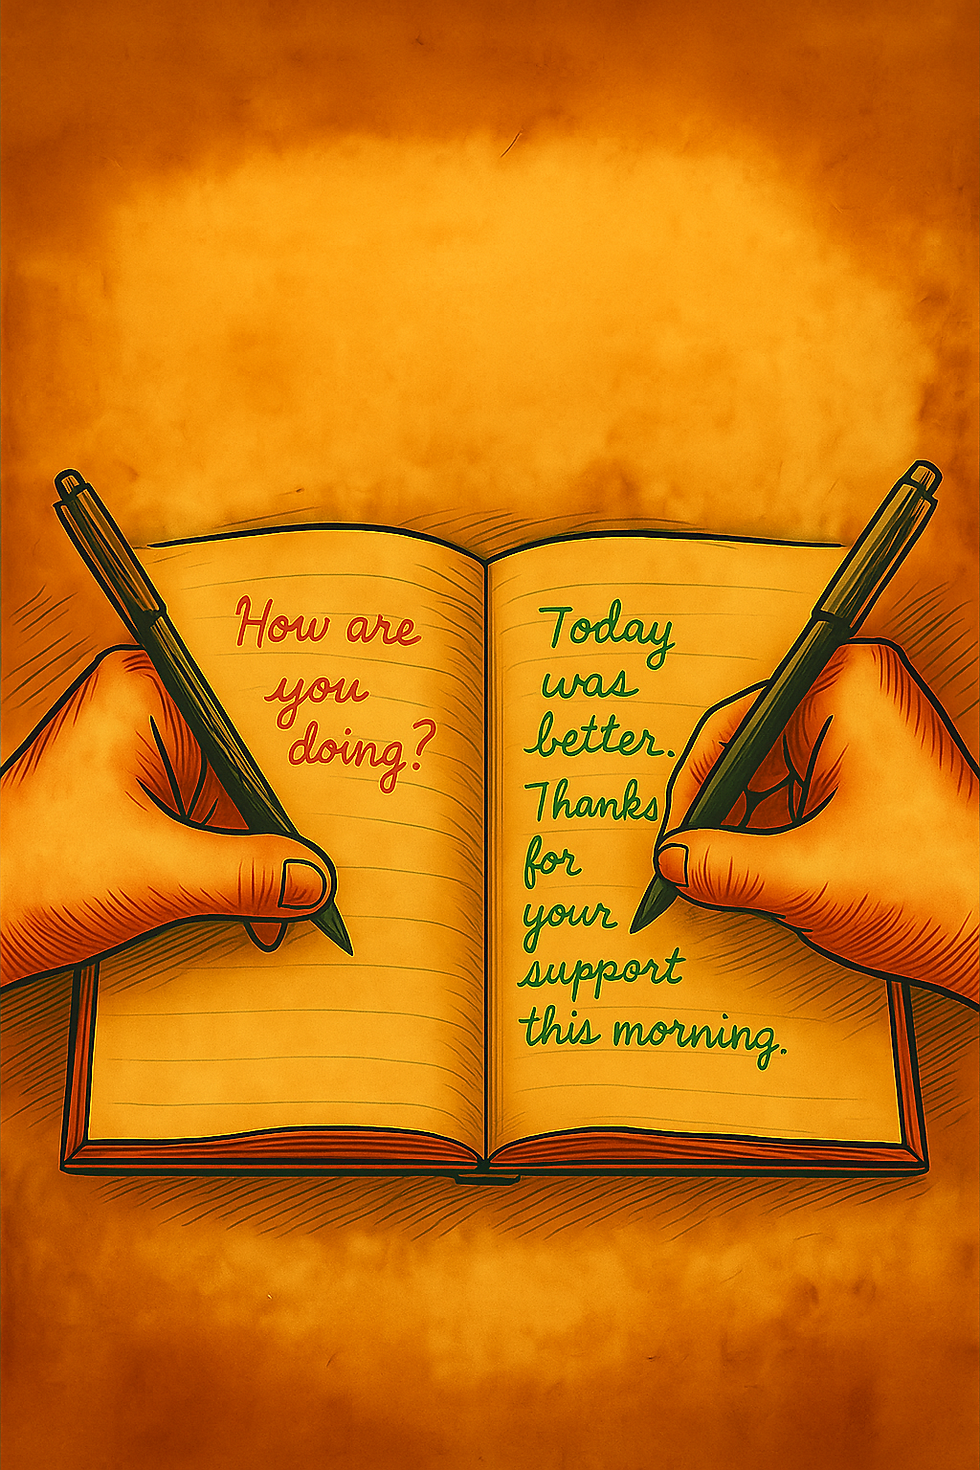 How are
you
doing?
Today
was
better.
Thanks
for
your
support
this morning.